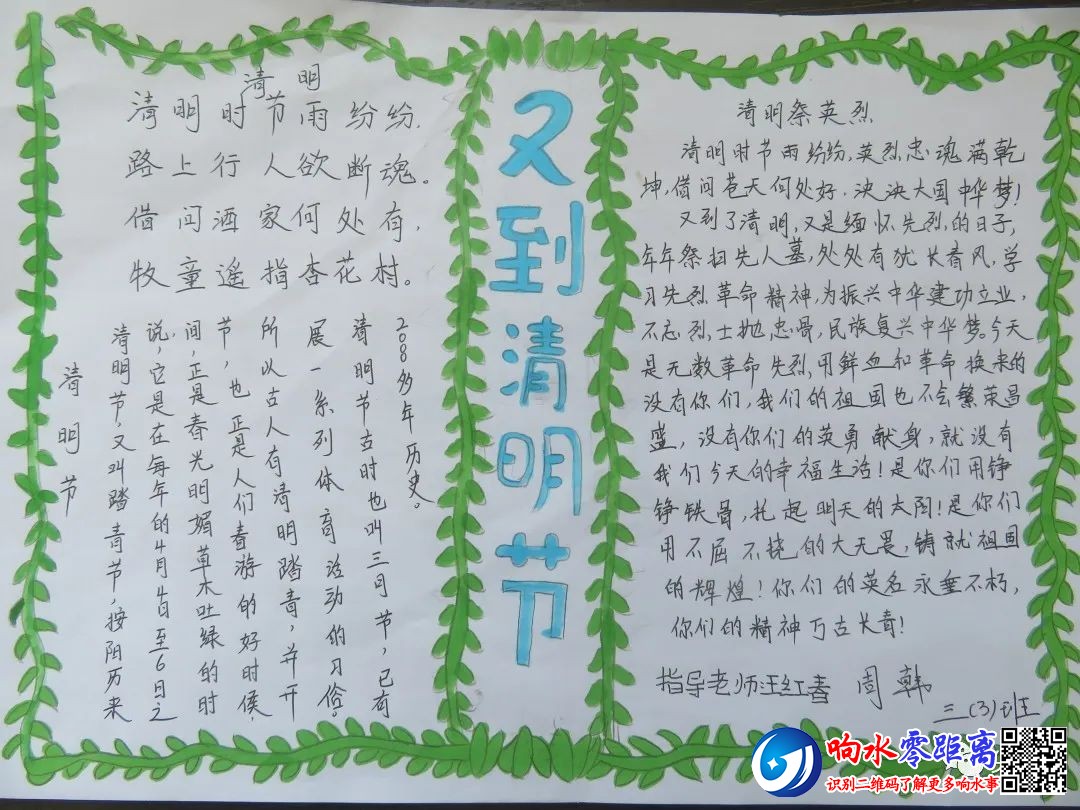 清明
清明时节雨纷纷，
路上行人欲断魂。
借问酒家何处有，
牧童遥指杏花村。
清明节
清明节，又叫踏青节，按阳历来
说，它是在每年的4月4日至6日之
间，正是春光明媚草木吐绿的时
节，也正是人们春游的好时候，
所以古人有清明踏青，并开
展一系列体育活动的习俗。
清明节古时也叫三月节，已有
2000多年历史。
又到清明节
清明祭英烈
清明时节雨纷纷，英烈忠魂满乾
坤，借问苍天何处好，泱泱大国中华梦！
又到了清明，又是缅怀先烈，的日子，
年年祭扫先人墓，处处有犹长春风，学
习先烈革命精神，为振兴中华建功立业，
不忘烈士抛忠骨，民族复兴中华梦。今天
是无数革命先烈，用鲜血和革命换来的
没有你们，我们的祖国也不会繁荣昌
盛，没有你们的英勇献身，就没有
我们今天的幸福生活！是你们用铮
铮铁骨，托起明天的太阳！是你们
用不屈不挠的大无畏，铸就祖国
的辉煌！你们的英名永垂不朽，
你们的精神万古长青！
指导老师汪红春 周韩
三(3)班
响水零距离
识别二维码了解更多响水事